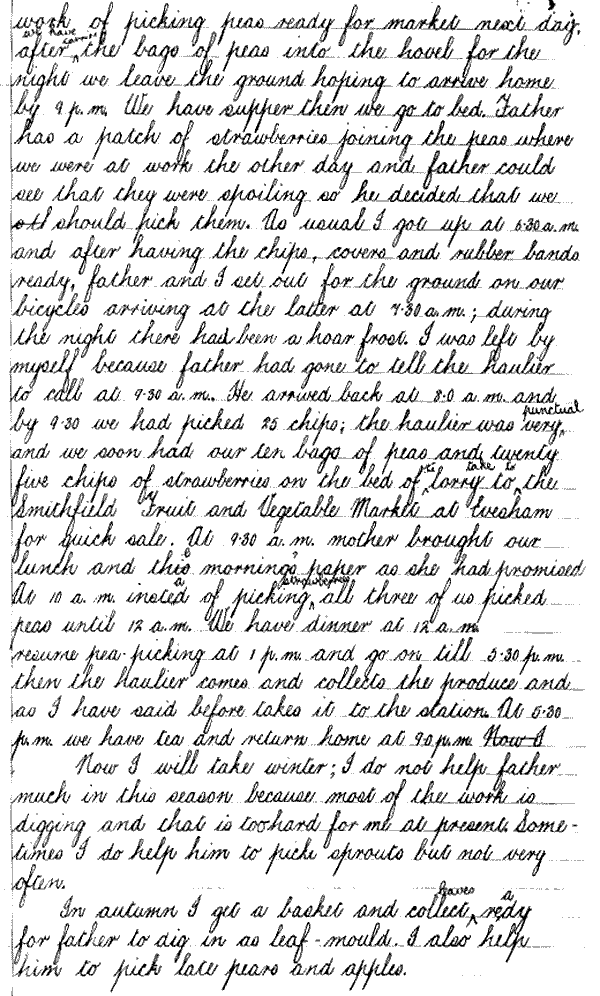 work of picking peas ready for market next day.
after we have carried the bags of peas into the hovel for the
night we leave the ground hoping to arrive home
by 9 p.m. We have supper then we go to bed. Father
has a patch of strawberries joining the peas where
we were at work the other day and father could
see that they were spoiling so he decided that we
should pick them. As usual I got up at 6.30 a.m.
and after having the chips, covers and rubber bands
ready, father and I set out for the ground on our
bicycles arriving at the latter at 7.30 a.m.; during
the night there had been a hoar frost. I was left by
myself because father had gone to tell the haulier
to call at 9.30 a.m. He arrived back at 8.0 a.m. and
by 9.30 we had picked 25 chips; the haulier was very punctual
and we soon had our ten bags of peas and twenty
five chips of strawberries on the bed of lorry to take to the
Smithfield Fruit and Vegetable Market at Evesham
for quick sale. At 9.30 a.m. mother brought our
lunch and this morning's paper as she had promised
At 10 a.m. instead of picking strawberries all three of us picked
peas until 12 a.m. We have dinner at 12 a.m.
resume pea-picking at 1 p.m. and go on till 5.30 p.m.
then the haulier comes and collects the produce and
as I have said before takes it to the station. At 5.30
p.m. we have tea and return home at 9.0 p.m. Now I
Now I will take winter; I do not help father
much in this season because most of the work is
digging and that is too hard for me at present. Some-
times I do help him to pick sprouts but not very
often.
In autumn I get a basket and collect leaves ready
for father to dig in as leaf-mould. I also help
him to pick late pears and apples.